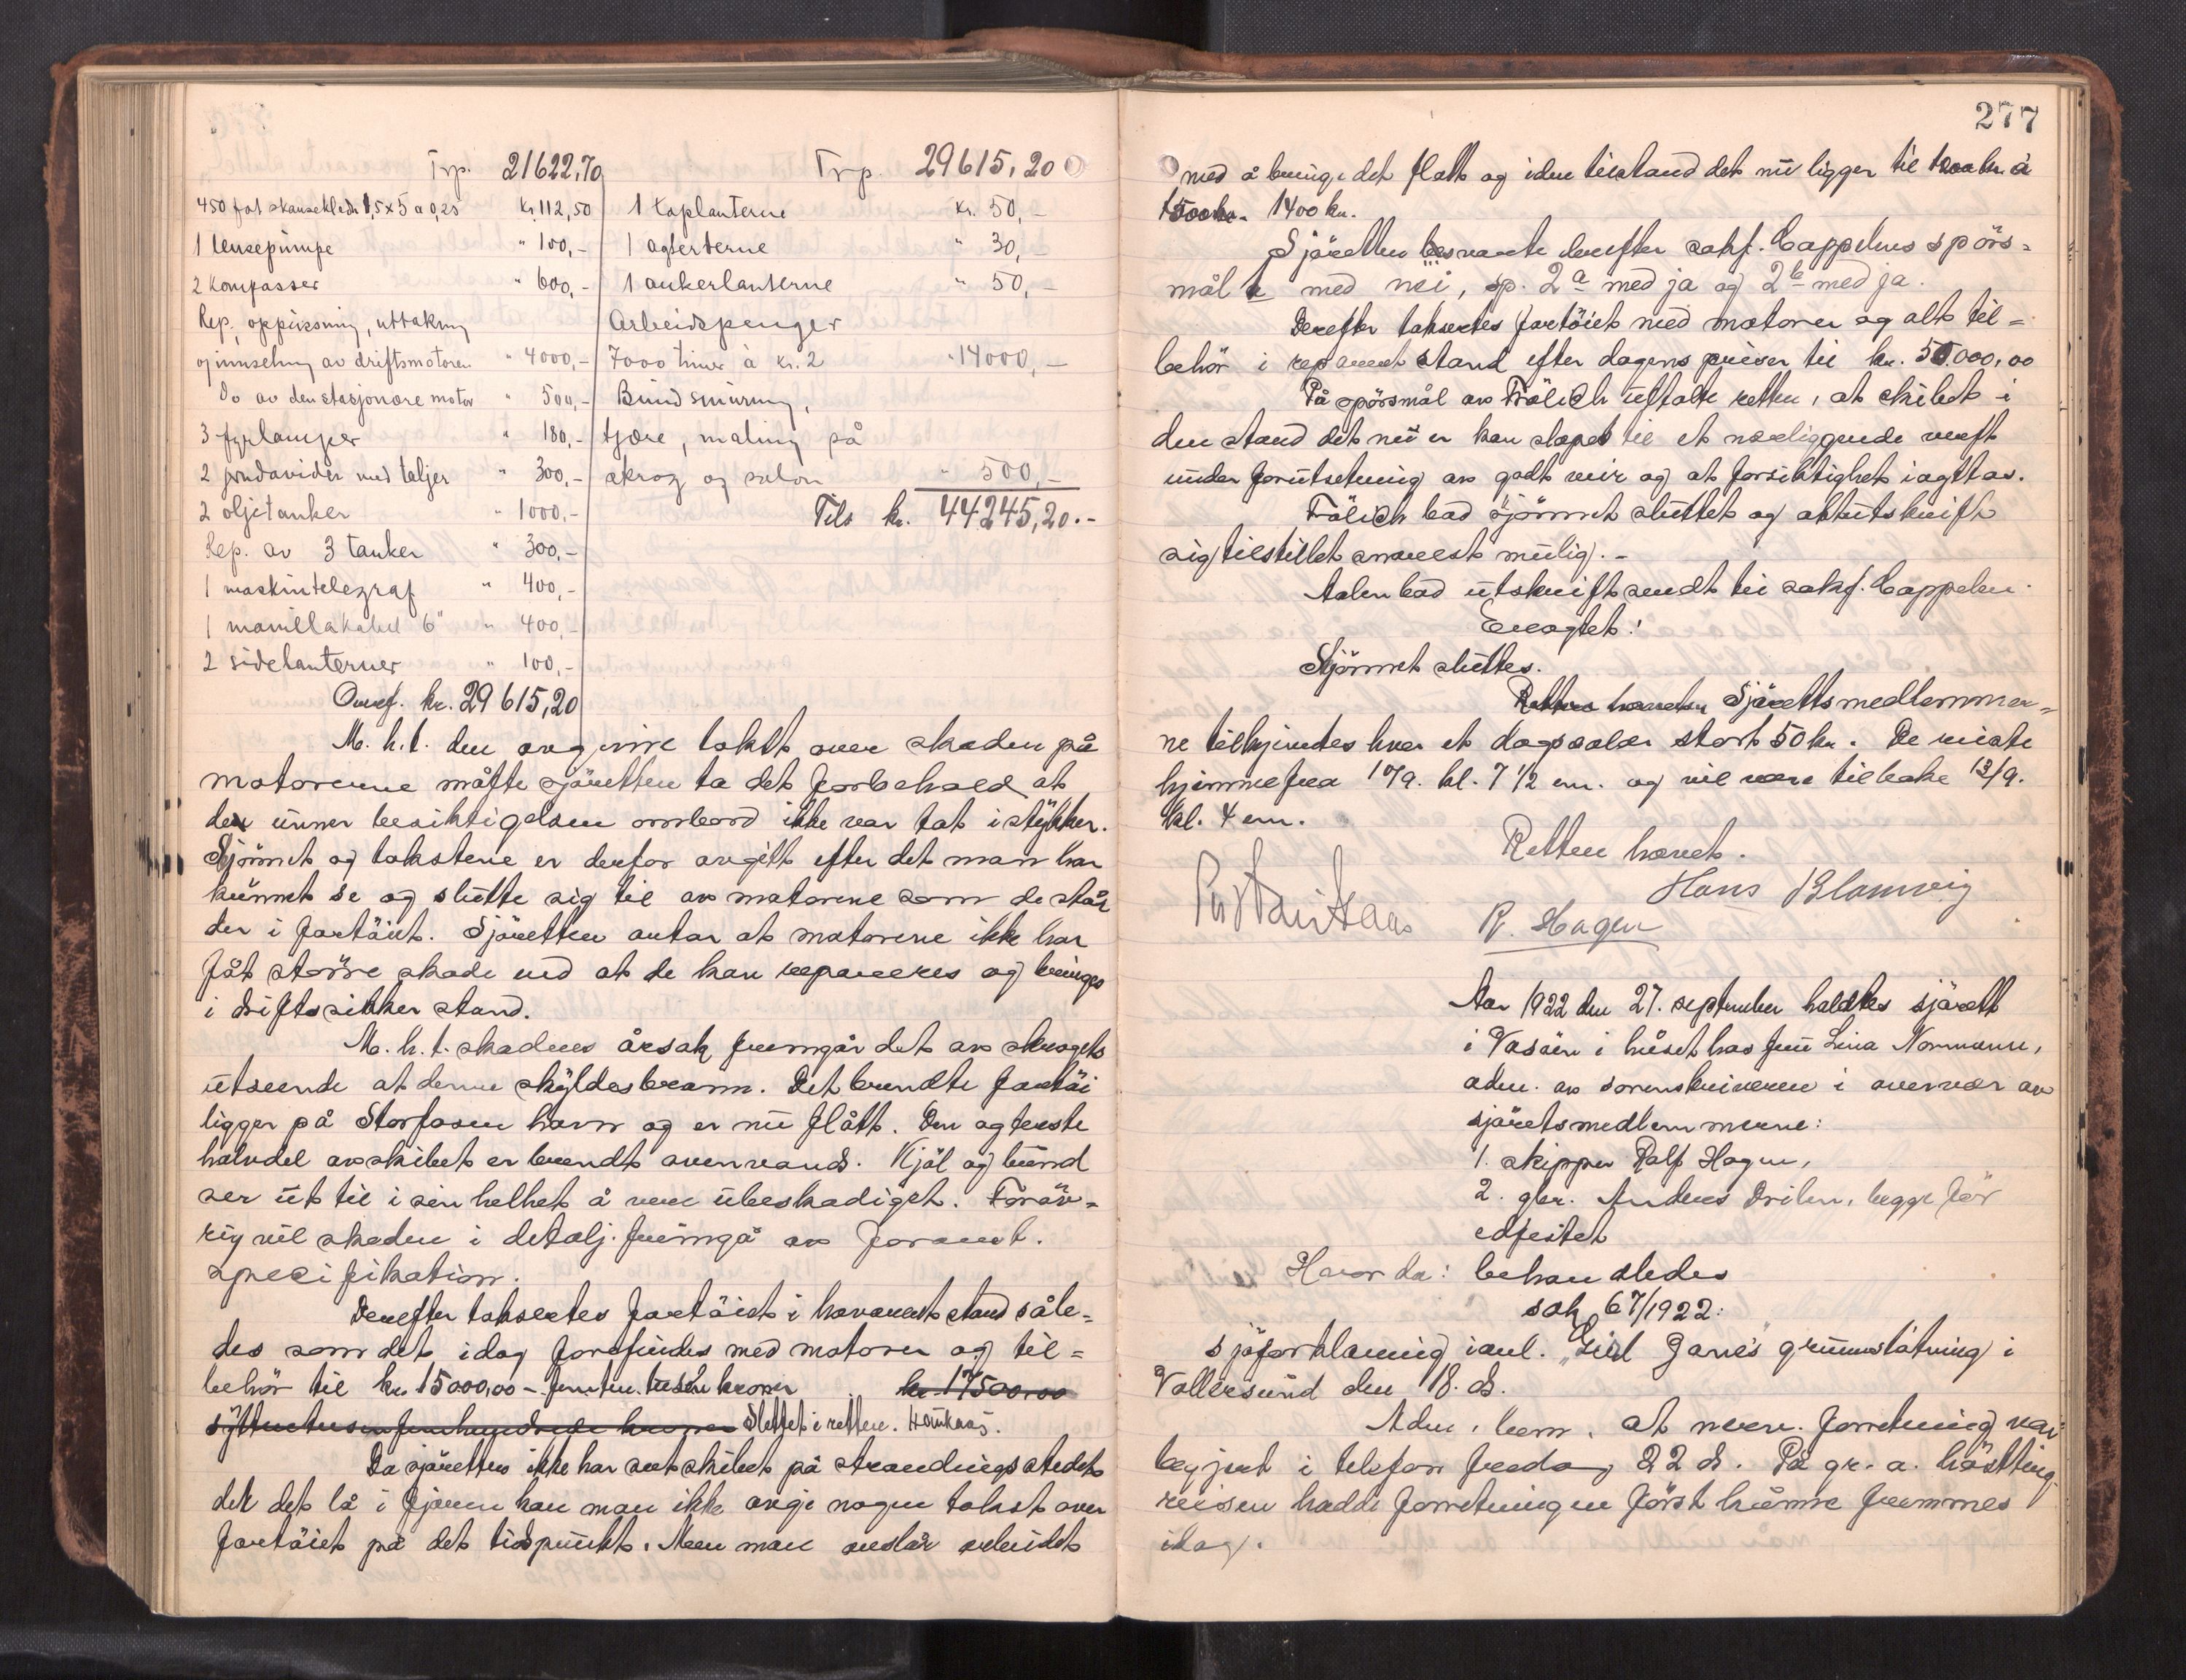 Trp. 21622,70
450 fot skansekledn 1,5 x 5 a 0,25 kr. 112,50
1 lensepumpe " 100,-
2 kompasser " 600,-
Rep. oppussning, uttakning
og innsetning av driftsmotoren " 4000,-
Do av den stasjonære motor " 500,-
3 fyrlamper " 180,-
2 jerndavider med taljer " 300,-
2 oljetanker " 1000,-
Rep. av 3 tanker " 300,-
1 maskintelegraf " 400,-
1 manillakabel 6" " 400,-
2 sidelanterner " 100,-
Overf. kr. 29615,20
Trp. 29615,20
1 toplanterne kr. 50,-
1 agterterne " 30,-
1 ankerlanterne " 50,-
Arbeidspenger
7000 timer à kr. 2 " 14000,-
Bundsmurning,
tjære, maling på
skrog og salon " 500,-
Tils kr. 44245,20.-
M. h. t. den avgivne takst over skaden på
motorerne måtte sjøretten ta det forbehold at
den under besiktigelsen ombord ikke var tat i stykker.
Skjønnet og takstene er derfor avgitt efter det man har
kunnet se og slutte sig til av motorene som de står
der i fartøiet. Sjøretten antar at motorene ikke har
fåt større skade end at de kan repareres og bringes
i driftssikker stand.
M. h. t. skadens årsak fremgår det av skrogets
utseende at denne skyldes brann. Det brendte fartøi
ligger på Storfosen havn og er nu flått. Den agterste
halvdel av skibet er brendt ovenvands. Kjøl og bund
ser ut til i sin helhet å være ubeskadiget. Forøv=
rig vil skaden i detalj. fremgå av foranst.
specifikation.
Derefter taksertes fartøiet i havarert stand såle=
des som det idag forefindes med motorer og til=
behør til kr. 15000,00 - femten tusen kroner kr. 17500,00
syttentusenfemhundrede kroner Slettet i retten. Haukaas.
Da sjøretten ikke har sett skibet på strandingsstedet
der det lå i fjæren kan man ikke avgi nogen takst over
fartøiet på det tidspunkt. Men man anslår arbeidet
277
med å bringe det flott og i den tilstand det nu ligger til 1200 kr. à
1500 kr. 1400 kr.
Sjøretten besvarte derefter sakf. Cappelens spørs=
mål 1 med nei, sp. 2a med ja og 2b med ja.
Derefter taksertes fartøiet med motorer og alt til=
behør i reparert stand efter dagens priser til kr. 50.000,00
På spørsmål av Frölich uttalte retten, at skibet i
den stand det nu er kan slæpes til et nærliggende verft
under forutsetning av godt veir og at forsiktighet iagttas.
Frölich bad skjønnet sluttet og aktutskrift
sig tilstillet snarest mulig. -
Aalen bad utskrift sendt til sakf. Cappelen.
Eragtet!
Skjønnet sluttes.
Retten hævet Sjørettsmedlemmer=
ne tilkjendes hver et dagsalær stort 50 kr. De reiste
hjemmefra 10/9. kl. 7 1/2 em. og vil være tilbake 13/9.
kl. 4 em.
Retten hævet.
Hans Blomvig
R. Hagen
Aar 1922 den 27. september holdtes sjørett
i Vasøen i huset hos fru Lina Normann,
adm. av sorenskriveren i overvær av
sjøretsmedlemmene:
1. skipper Ralf Hagen,
2. gbr. Anders Drilen, begge før
edfestet
Hvorda: behandledes
sak 67/1922:
sjøforklaring i anl. "Girl Janes" grunnstøtning i
Vallersund den 18. ds.
Adm. bem. at nærv. forretning var
begjært i telefon fredag 22 ds. På gr. a. høstting
reisen hadde forretningen først kunne fremmes
idag.